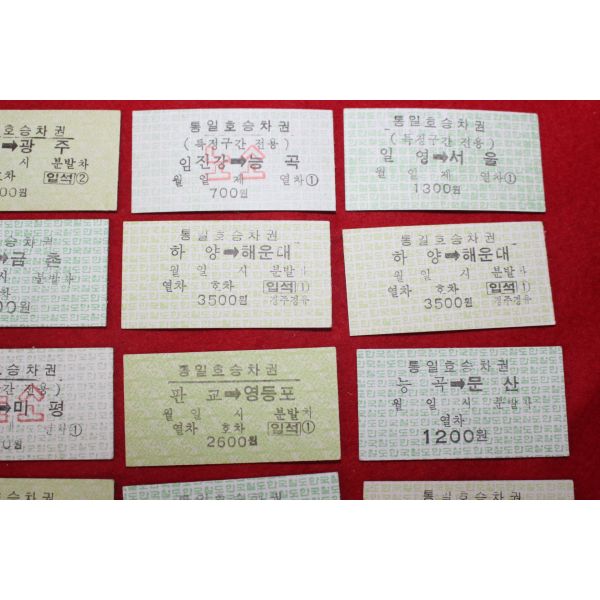 호승차권
➡광 주
시 분발차
호차 입석②
00원
통일호승차권
(특정구간 전용)
임진강➡능 곡
노소
월 일 제 열차①
700원
통일호승차권
(특정구간 전용)
일 영➡서 울
월 일 제 열차①
1300원
호승차권
➡금 촌
시 분발차
호차
00원
통일호승차권
하 양➡해운대
월 일 시 분발차
열차 호차 입석①
3500원 경주경유
통일호승차권
하 양➡해운대
월 일 시 분발차
열차 호차 입석①
3500원 경주경유
호승차권
구간 전용)
➡마 평
열차①
0원
통일호승차권
판 교➡영등포
월 일 시 분발차
열차 호차 입석①
2600원
통일호승차권
능 곡➡문 산
월 일 시 분발차
열차
1200원
호승차권
통일호승차권
통일호승차권